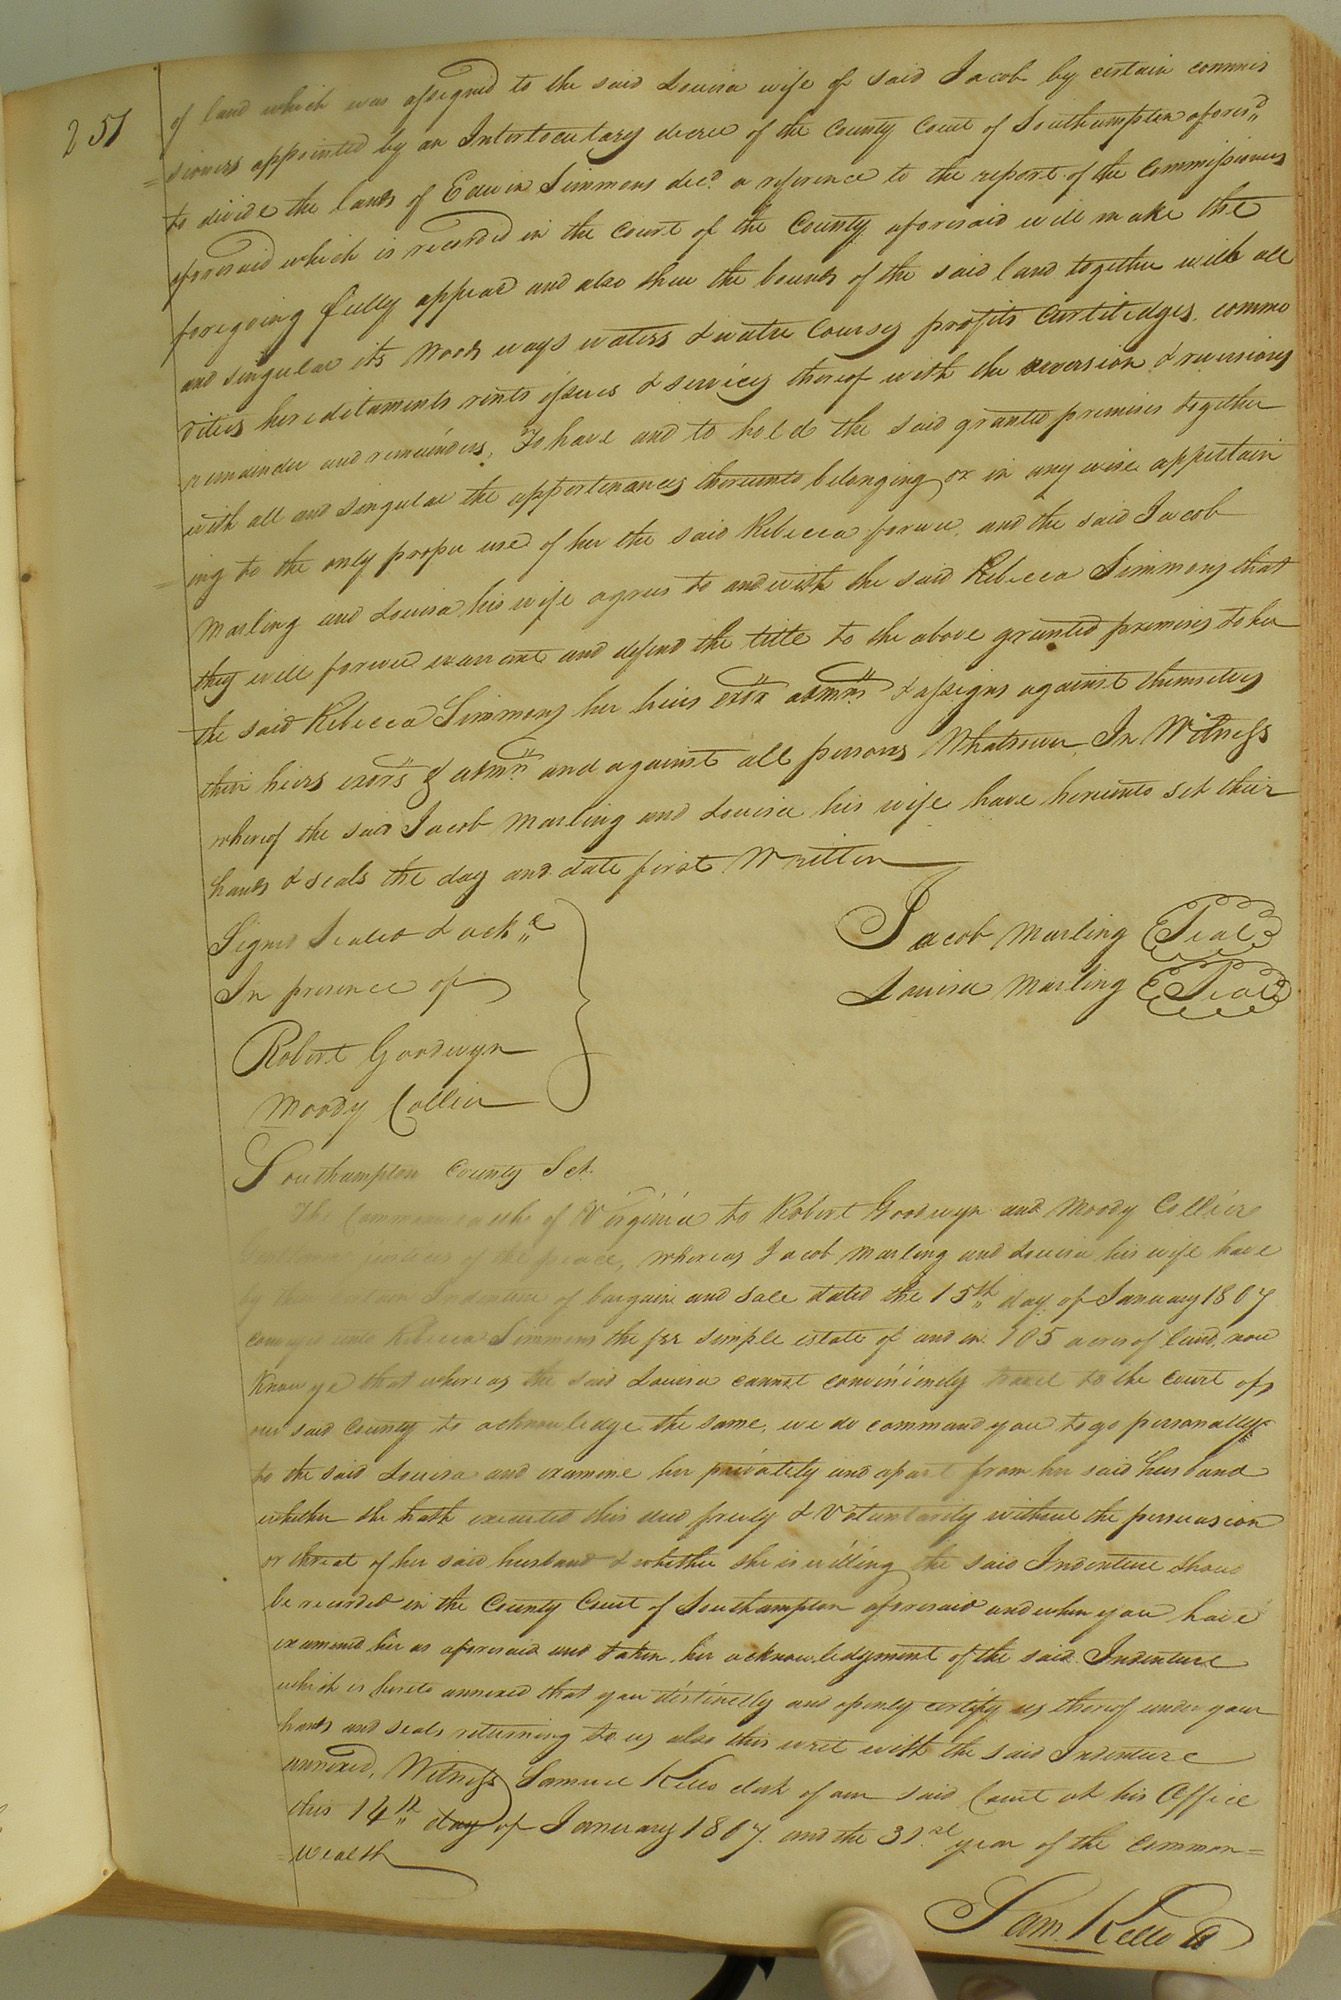 251
of land which was assigned to the said Louisa wife of said Jacob by certain commis
=sioners appointed by an Interlocutary decree of the County Court of Southampton aforesd.
to divide the lands of Edwin Simmons decd. a reference to the report of the Commissioners
aforesaid which is recorded in the Court of the County aforesaid will make the
foregoing fully appear and also shew the bounds of the said land together with all
and singular its woods ways waters & water courses profits commo
dities hereditaments rents issues & services thereof with the reversion & reversions
remainder and remainders, To have and to hold the said granted premises together
with all and singular the appertinances thereunto belonging or in any wise appertain
=ing to the only proper use of her the said Rebecca forever, and the said Jacob
Marling and Louisa his wife agrees to and with the said Rebecca Simmons that
they will forever warrant and defend the title to the above granted premises to her
the said Rebecca Simmons her heirs exors. admrs. & assigns against themselves
their heirs exors. & admrs. and against all persons Whatsoever In Witness
whereof the said Jacob Marling and Louisa his wife have hereunto set their
hands & seals the day and date first Written
Signed Sealed & ackd.
In presence of
Robert Goodwyn
Moody Collier
Jacob Marling Seal
Louisa Marling Seal
Southampton County Sct.
The Commonwealth of Virginia to Robert Goodwyn and Moody Collier
Gentlemen justices of the peace, whereas Jacob Marling and Louisa his wife have
by their certain Indenture of bargain and sale dated the 15th day of January 1807
conveyed unto Rebecca Simmons the fee simple estate of and in 105 acres of land, now
Know ye that whereas the said Louisa cannot conveniently travel to the court of
our said county to acknowledge the same, we do command you to go personally
to the said Louisa and examine her privately and apart from her said husband
whether she hath executed this deed freely & voluntarily without the persuasion
or threat of her said husband & whether she is willing the said Indenture should
be recorded in the County Court of Southampton aforesaid and when you have
examined her as aforesaid and taken her acknowledgment of the said Indenture
which is hereto annexed that you distinctly and openly certify us thereof under your
hands and seals returning to us also this writ with the said Indenture
annexed, Witness Samuel Kello clerk of our said Court at his Office
this 14th day of January 1807. and the 31st year of the Common=
=wealth
Sam. Kello